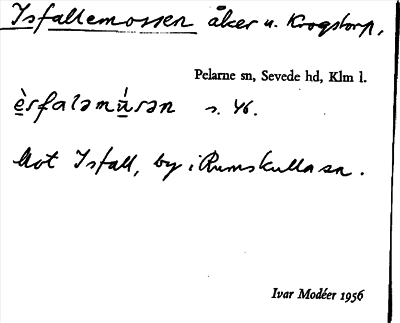 Isfallemossen åker u. Krogstorp,
Pelarne sn, Sevede hd, Klm l.
èsfaləmúsən s. 46.
Mot Isfall, by i Rumskulla sn.
Ivar Modéer 1956